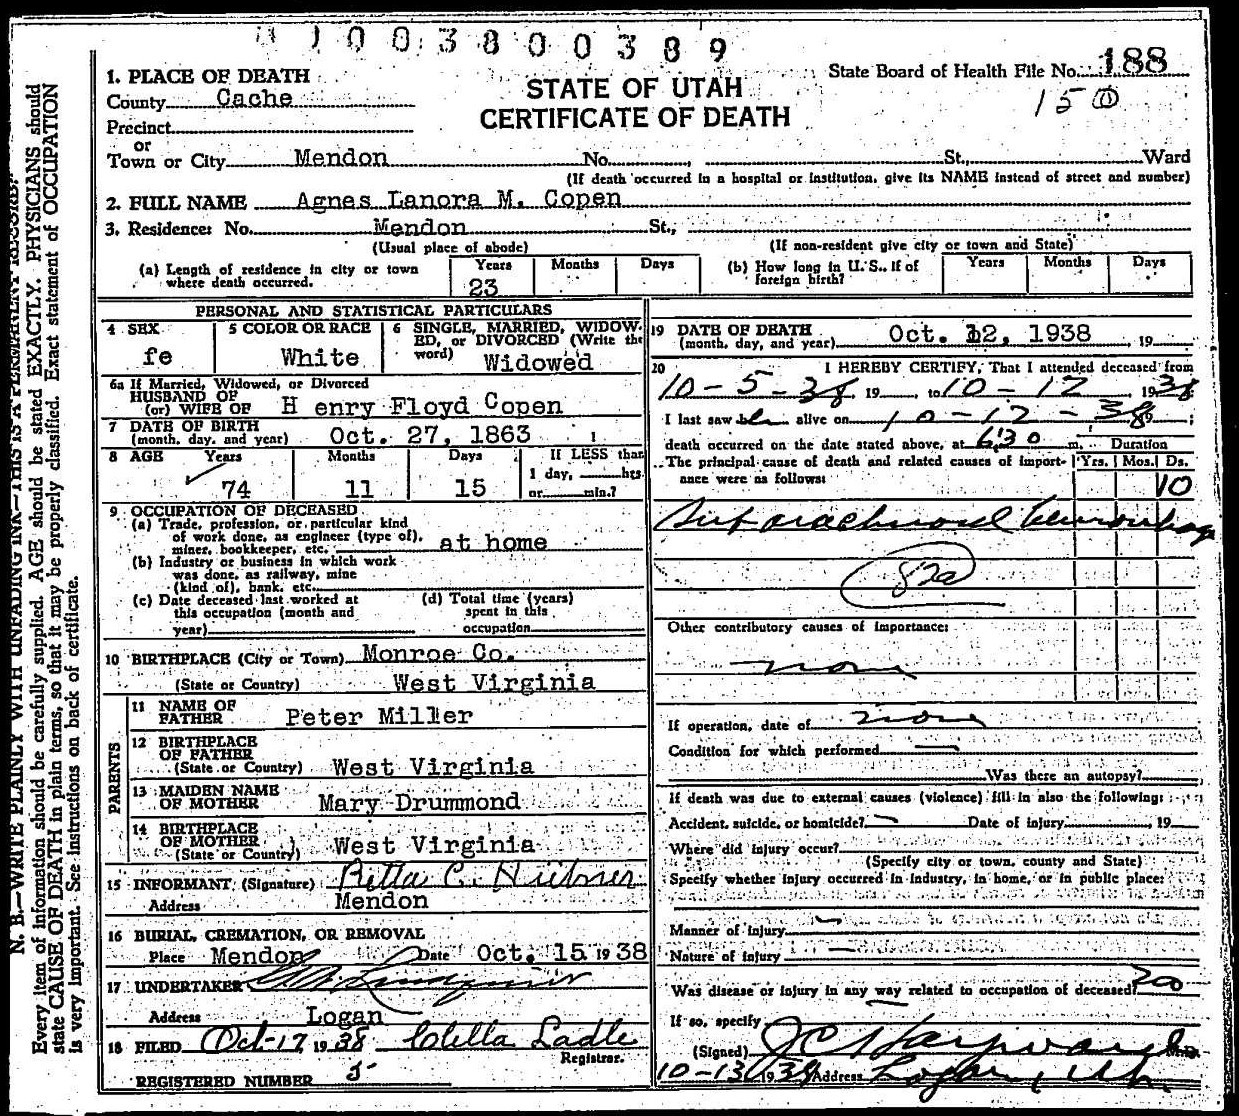 1003800389
State Board of Health File No. 188
15
1. PLACE OF DEATH
County Cache
STATE OF UTAH
CERTIFICATE OF DEATH
Precinct
or
Town or City Mendon No. , St., Ward
(If death occurred in a hospital or institution, give its NAME instead of street and number)
2. FULL NAME Agnes Lanora M. Copen
3. Residence: No. Mendon St.,
(Usual place of abode) (If non-resident give city or town and State)
(a) Length of residence in city or town where death occurred. Years 23 Months Days
(b) How long in U.S., if of foreign birth? Years Months Days
PERSONAL AND STATISTICAL PARTICULARS
4 SEX fe
5 COLOR OR RACE White
6 SINGLE, MARRIED, WIDOWED, or DIVORCED (Write the word) Widowed
6a If Married, Widowed, or Divorced
HUSBAND OF
(or) WIFE OF H enry Floyd Copen
7 DATE OF BIRTH
(month, day, and year) Oct. 27, 1863
8 AGE Years 74 Months 11 Days 15 If LESS than 1 day, hrs. or min.?
9 OCCUPATION OF DECEASED
(a) Trade, profession, or particular kind
of work done, as engineer (type of),
miner, bookkeeper, etc. at home
(b) Industry or business in which work
was done, as railway, mine
(kind of), bank, etc.
(c) Date deceased last worked at
this occupation (month and
year)
(d) Total time (years)
spent in this
occupation
10 BIRTHPLACE (City or Town) Monroe Co.
(State or Country) West Virginia
PARENTS
11 NAME OF
FATHER Peter Miller
12 BIRTHPLACE
OF FATHER
(State or Country) West Virginia
13 MAIDEN NAME
OF MOTHER Mary Drummond
14 BIRTHPLACE
OF MOTHER
(State or Country) West Virginia
15 INFORMANT (Signature) Retta C. Hübner
Address Mendon
16 BURIAL, CREMATION, OR REMOVAL
Place Mendon Date Oct. 15 1938
17 UNDERTAKER
Address Logan
18 FILED Oct-17 1938 Clella Ladle
Registrar.
REGISTERED NUMBER 5
19 DATE OF DEATH
(month, day, and year) Oct. 12, 1938, 19
20 I HEREBY CERTIFY, That I attended deceased from
10-5-38, 19 , to 10-12 1938
I last saw her alive on 10-12-38 ;
death occurred on the date stated above, at 6:30 m. Duration
The principal cause of death and related causes of importance were as follows: Yrs. Mos. Ds.
10
Subarachnoid hemorrhage
82a
Other contributory causes of importance:
none
If operation, date of none
Condition for which performed —
Was there an autopsy?
If death was due to external causes (violence) fill in also the following:
Accident, suicide, or homicide? — Date of injury , 19
Where did injury occur?
(Specify city or town, county and State)
Specify whether injury occurred in industry, in home, or in public place:
Manner of injury —
Nature of injury —
Was disease or injury in any way related to occupation of deceased? no
If so, specify
(Signed) J C Hayward M.D.
10-13 1938 Address Logan, Ut.
N. B.—WRITE PLAINLY WITH UNFADING INK—THIS IS A PERMANENT RECORD.
Every item of information should be carefully supplied. AGE should be stated EXACTLY. PHYSICIANS should
state CAUSE OF DEATH in plain terms, so that it may be properly classified. Exact statement of OCCUPATION
is very important. See instructions on back of certificate.